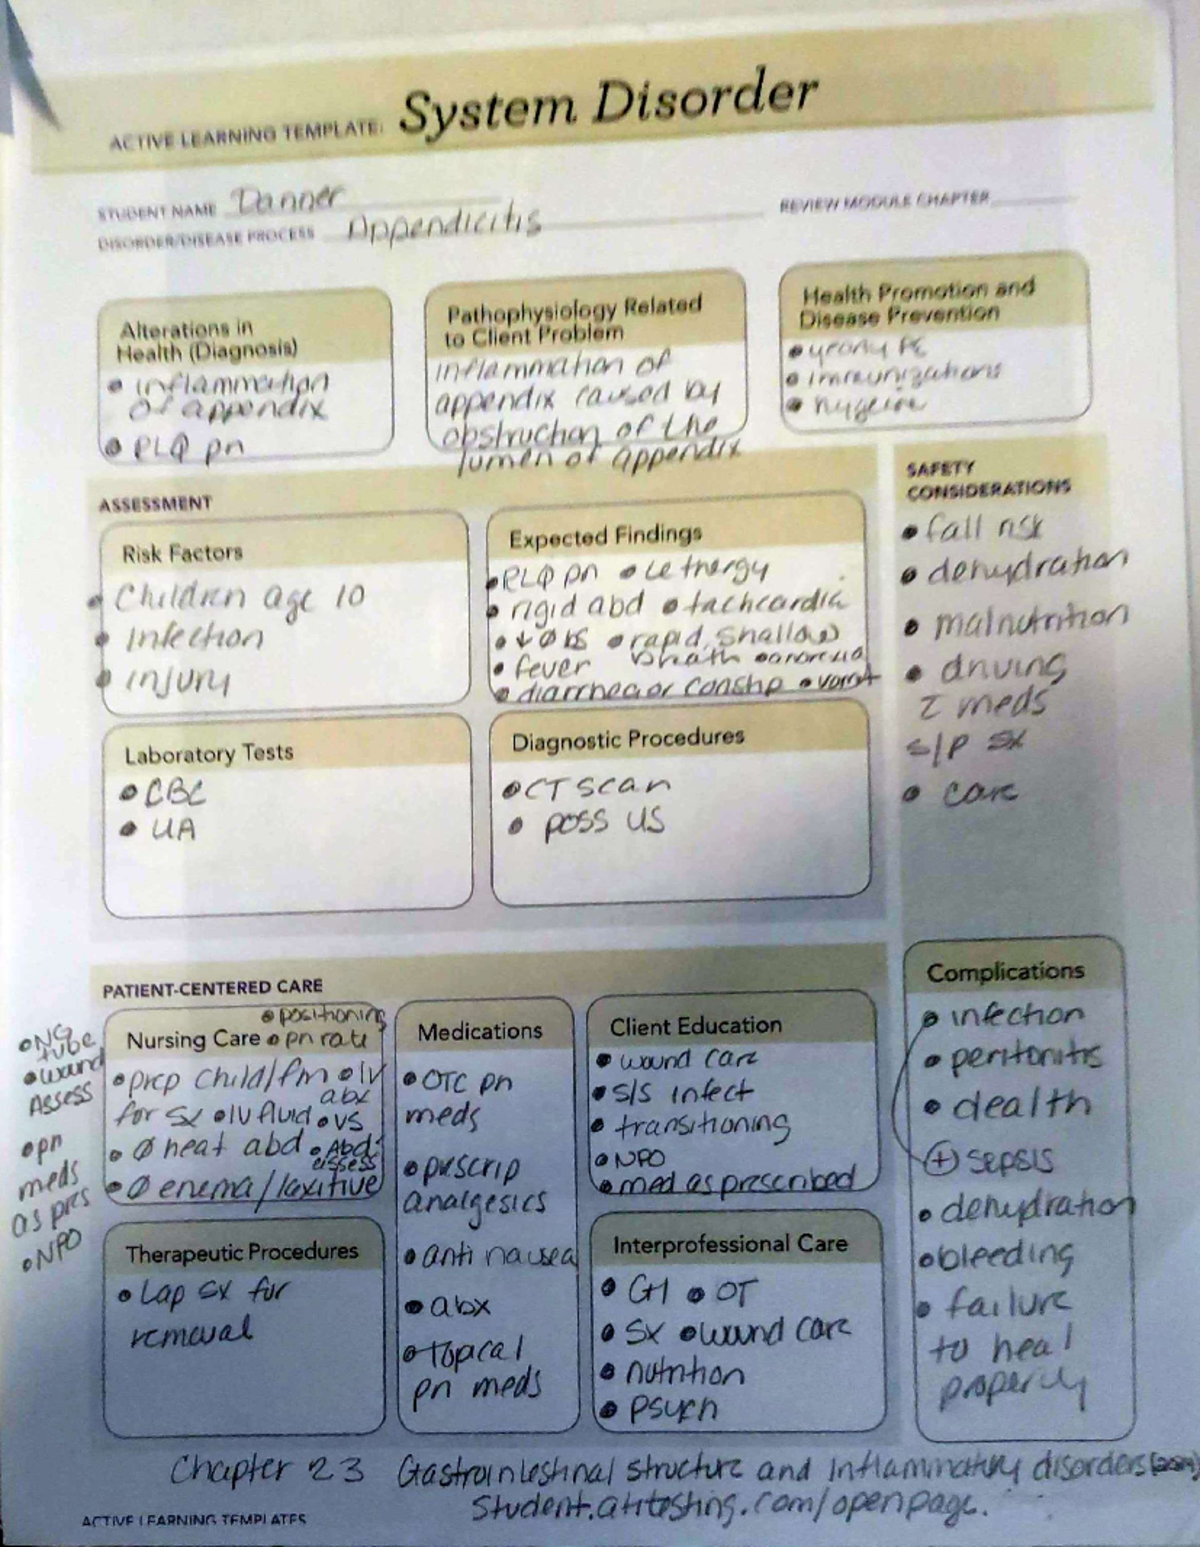 ACTIVE LEARNING TEMPLATE: System Disorder
STUDENT NAME Danner
REVIEW MODULE CHAPTER
DISORDER/DISEASE PROCESS Appendicitis
Alterations in
Health (Diagnosis)
• inflammation
of appendix
• RLQ pn
Pathophysiology Related
to Client Problem
inflammation of
appendix caused by
obstruction of the
lumen of appendix
Health Promotion and
Disease Prevention
• yearly PE
• immunizations
• hygeine
ASSESSMENT
Risk Factors
• Children age 10
• Infection
• injury
Expected Findings
• RLQ pn • lethergy
• rigid abd • tachcardia
• ↓ Ø BS • rapid, shallow
• fever breath • anorexia
• diarrhea or constip • vomit
Laboratory Tests
• CBC
• UA
Diagnostic Procedures
• CT scan
• poss US
SAFETY
CONSIDERATIONS
• fall risk
• dehydration
• malnutrition
• driving
c meds
s/p sx
• care
PATIENT-CENTERED CARE
Nursing Care • pn rate
• positioning
• prep child/fm • IV
abx
for sx • IV fluid • VS
• Ø heat abd • Abd
assess
• Ø enema/laxitive
• NG
tube
• wound
Assess
• pn
meds
as pres
• NPO
Medications
• OTC pn
meds
• prescrip
analgesics
• anti nausea
• abx
• topical
pn meds
Client Education
• wound care
• s/s infect
• transitioning
• NPO
• med as prescribed
Therapeutic Procedures
• Lap sx for
removal
Interprofessional Care
• GI • OT
• sx • wound care
• nutrition
• psych
Complications
• infection
• peritonitis
• dealth
+ sepsis
• dehydration
• bleeding
• failure
to heal
properly
Chapter 23 Gastrointestinal structure and inflammatory disorders
student.atitesting.com/openpage.
ACTIVE LEARNING TEMPLATES